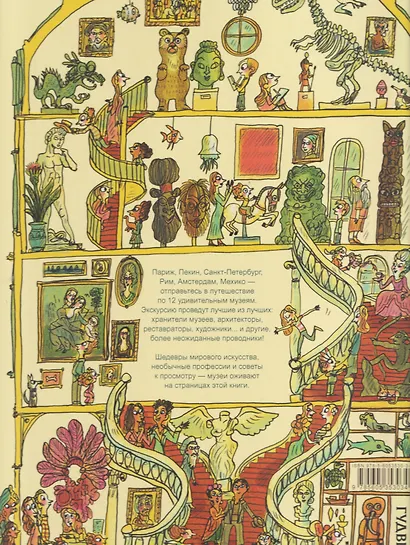 Париж, Пекин, Санкт-Петербург,
Рим, Амстердам, Мехико —
отправьтесь в путешествие
по 12 удивительным музеям.
Экскурсию проведут лучшие из лучших
хранители музеев, архитекторы,
реставраторы, художники... и другие,
более неожиданные проводники!
Шедевры мирового искусства,
необычные профессии и советы
к просмотру — музеи оживают
на страницах этой книги.